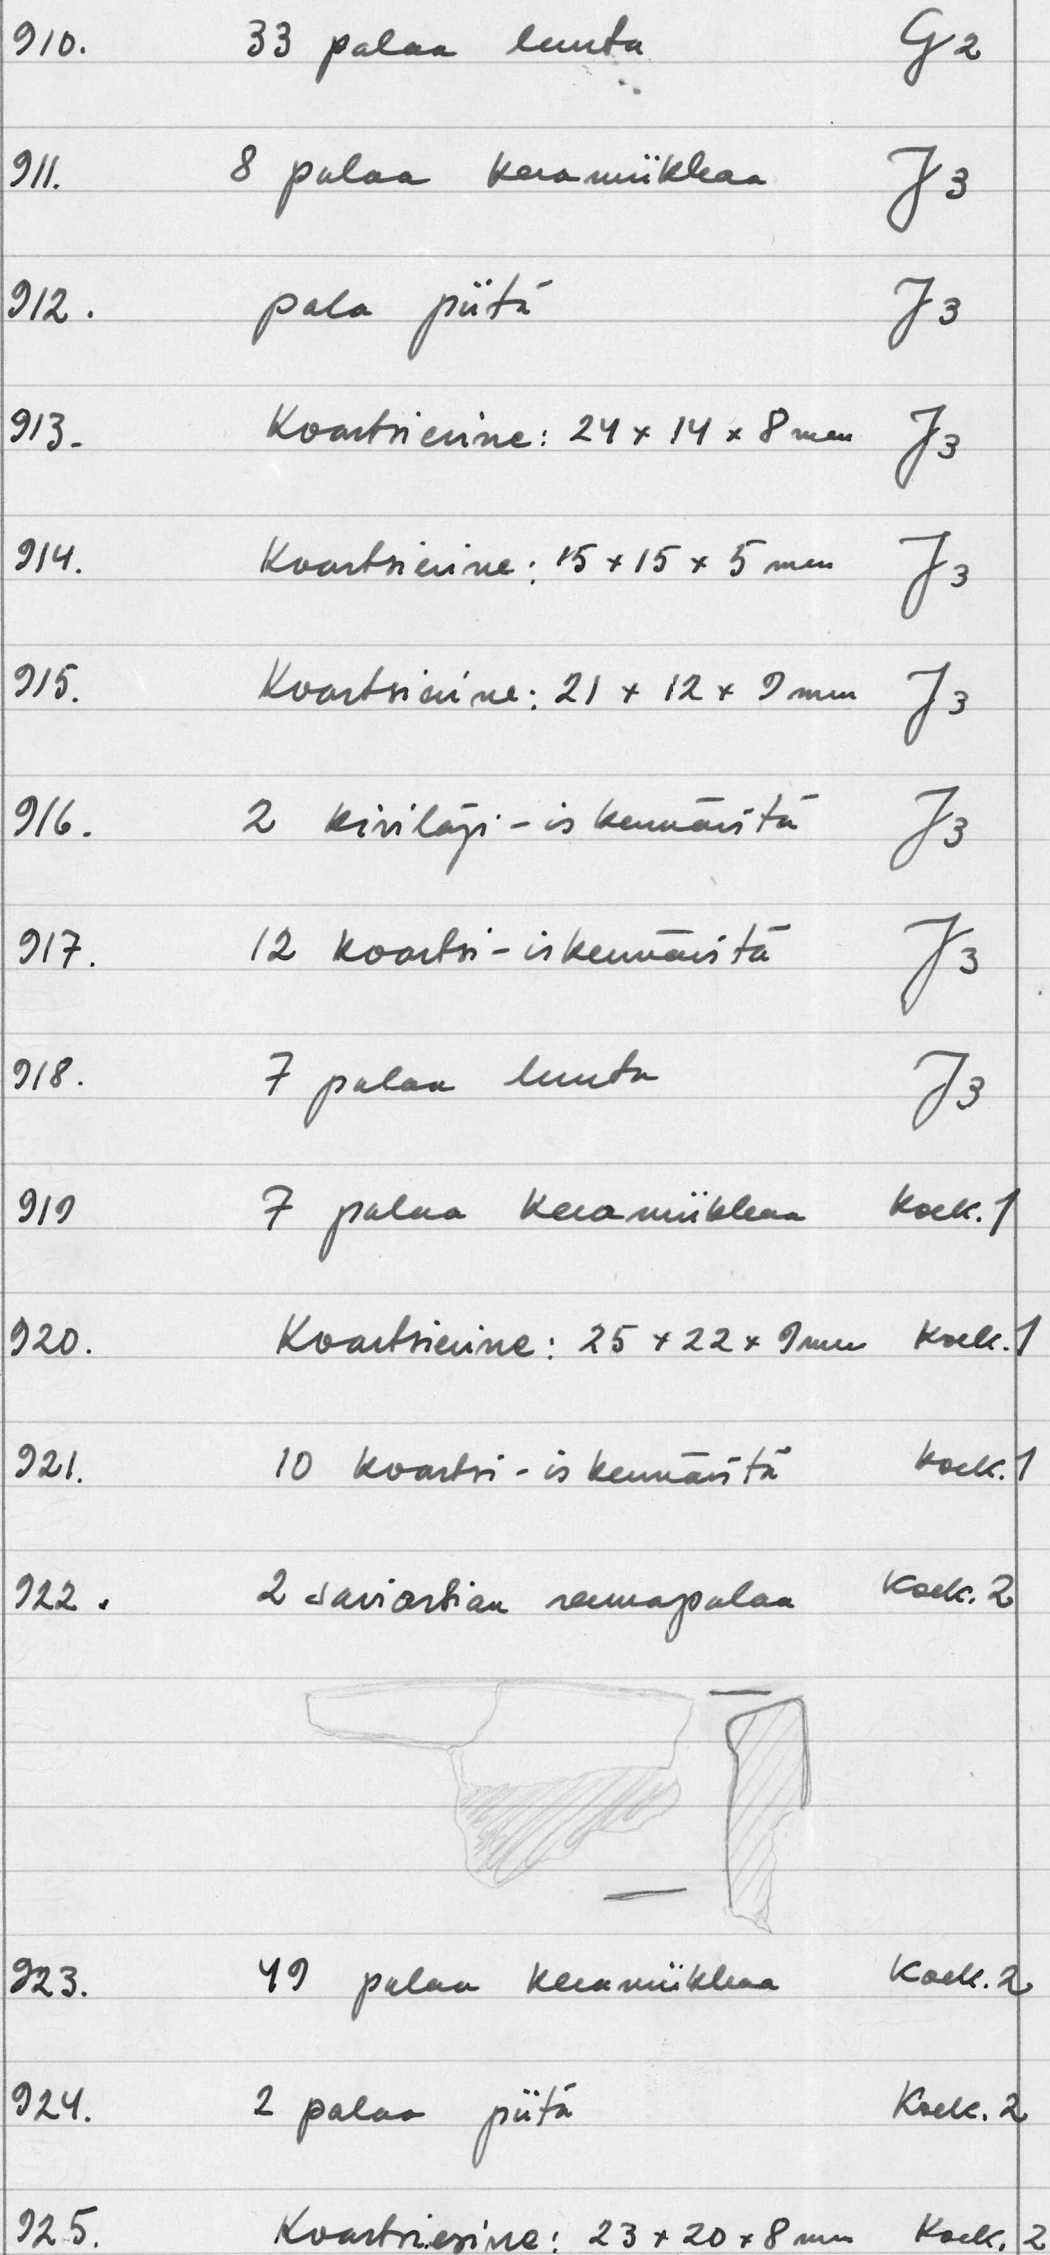 910. 33 palaa luuta G2
911. 8 palaa keramiikkaa J3
912. pala piitä J3
913. Kvartsiesine: 24 x 14 x 8 mm J3
914. Kvartsiesine: 15 x 15 x 5 mm J3
915. Kvartsiesine: 21 x 12 x 9 mm J3
916. 2 kivilaji-iskennäistä J3
917. 12 kvartsi-iskennäistä J3
918. 7 palaa luuta J3
919 7 palaa keramiikkaa Koek. 1
920. Kvartsiesine: 25 x 22 x 9 mm Koek. 1
921. 10 kvartsi-iskennäistä Koek. 1
922. 2 saviastian reunapalaa Koek. 2
923. 49 palaa keramiikkaa Koek. 2
924. 2 palaa piitä Koek. 2
925. Kvartsiesine: 23 x 20 x 8 mm Koek. 2